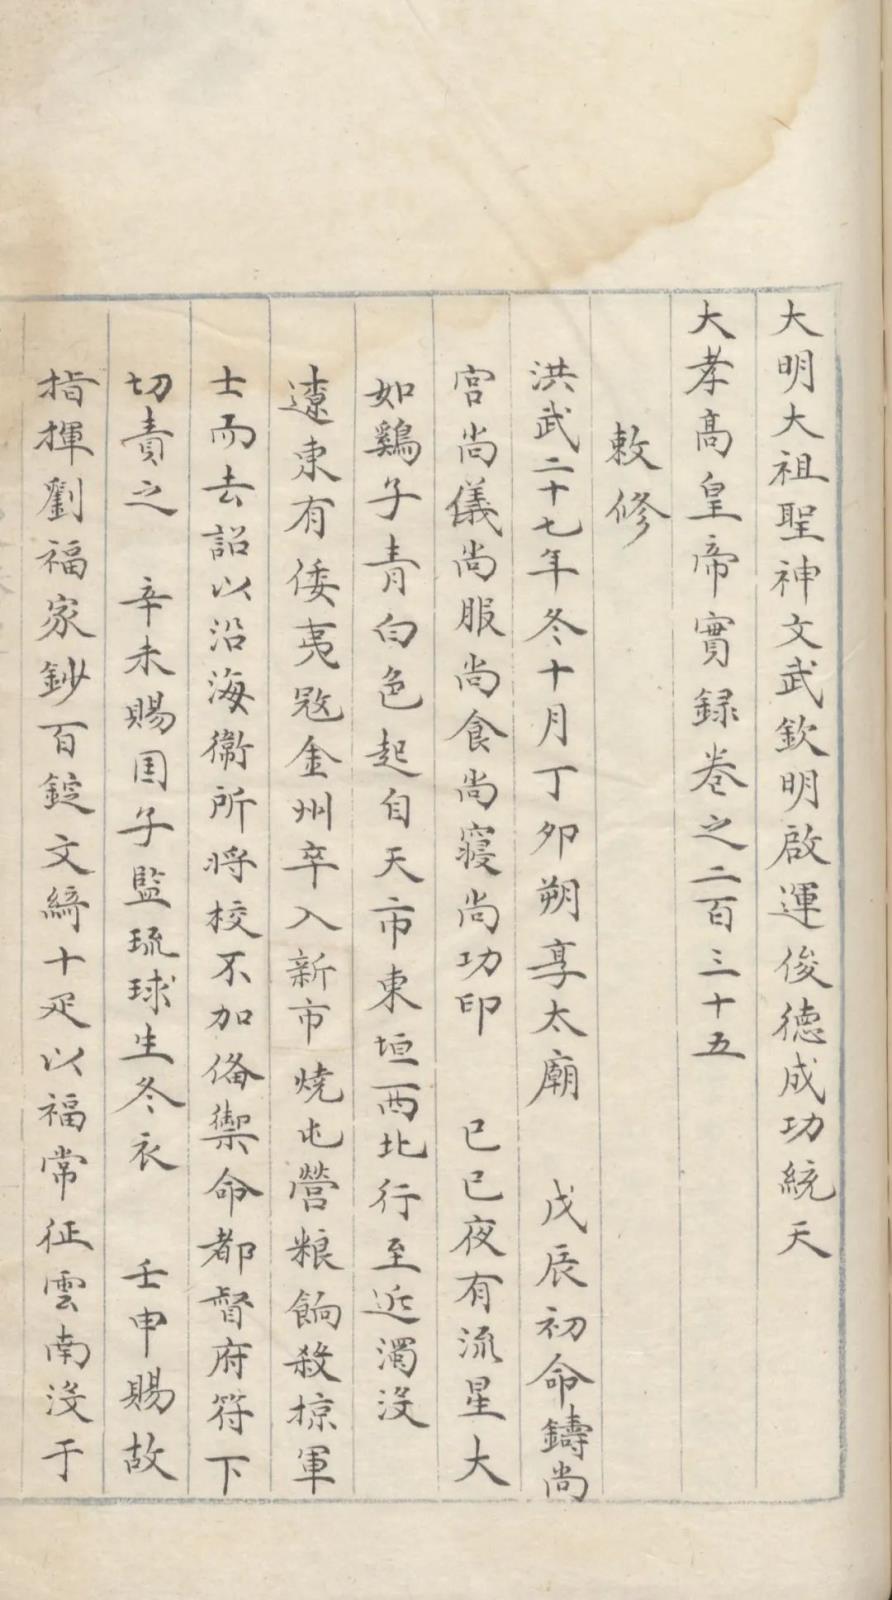 大明大祖聖神文武欽明啟運俊德成功統天
大孝高皇帝實録卷之二百三十五
敕修
洪武二十七年冬十月丁卯朔享太廟　戊辰初命鑄尚
宮尚儀尚服尚食尚寢尚功印　已已夜有流星大
如鷄子青白色起自天市東垣西北行至近濁沒
遼東有倭夷寇金州卒入新市燒屯營粮餉殺掠軍
士而去詔以沿海衞所將校不加俻禦命都督府符下
切責之　辛未賜国子監琉球生冬衣　壬申賜故
指揮劉福家鈔百錠文綺十疋以福常征雲南沒于